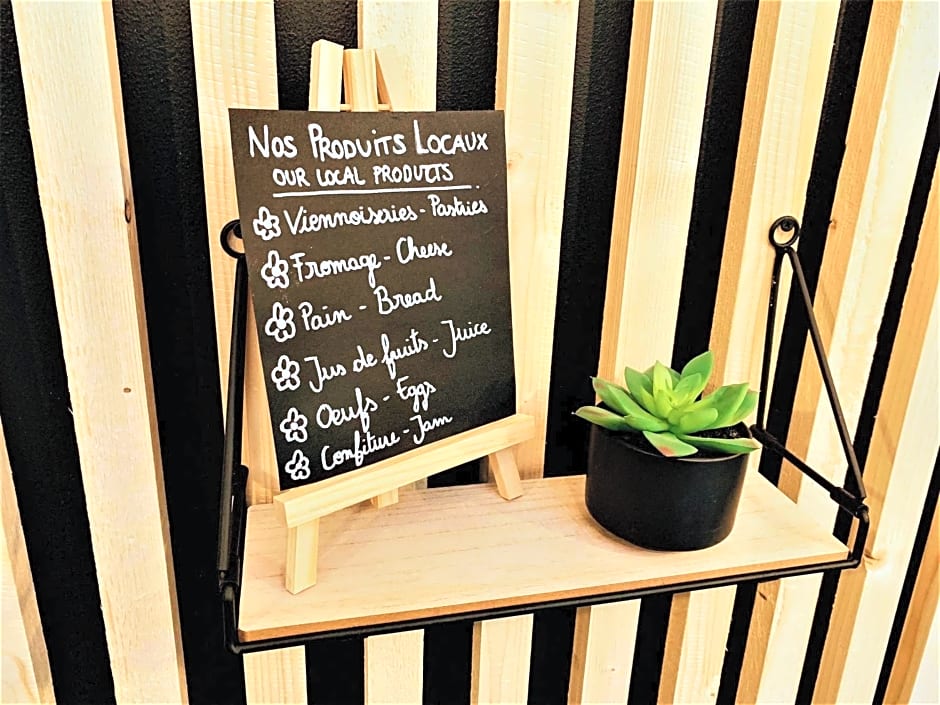 Nos Produits Locaux
OUR LOCAL PRODUCTS
Viennoiseries - Pastries
Fromage - Cheese
Pain - Bread
Jus de fruits - Juice
Oeufs - Eggs
Confiture - Jam